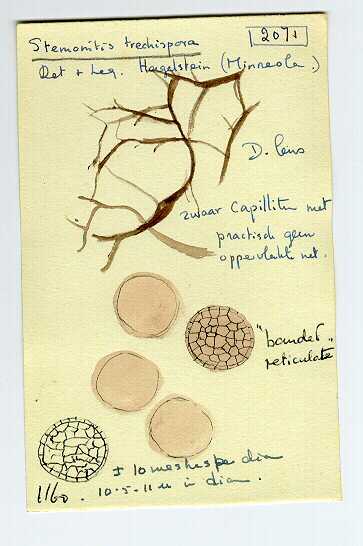 Stemonitis trechispora
2071
Det + Leg. Hagelstein (Minneola.)
D. lens
zwaar Capillitium met
practisch geen
oppervlakte net.
"banded"
reticulate
± 10 meshes per dia
1160. 10.5-11 u in diam.